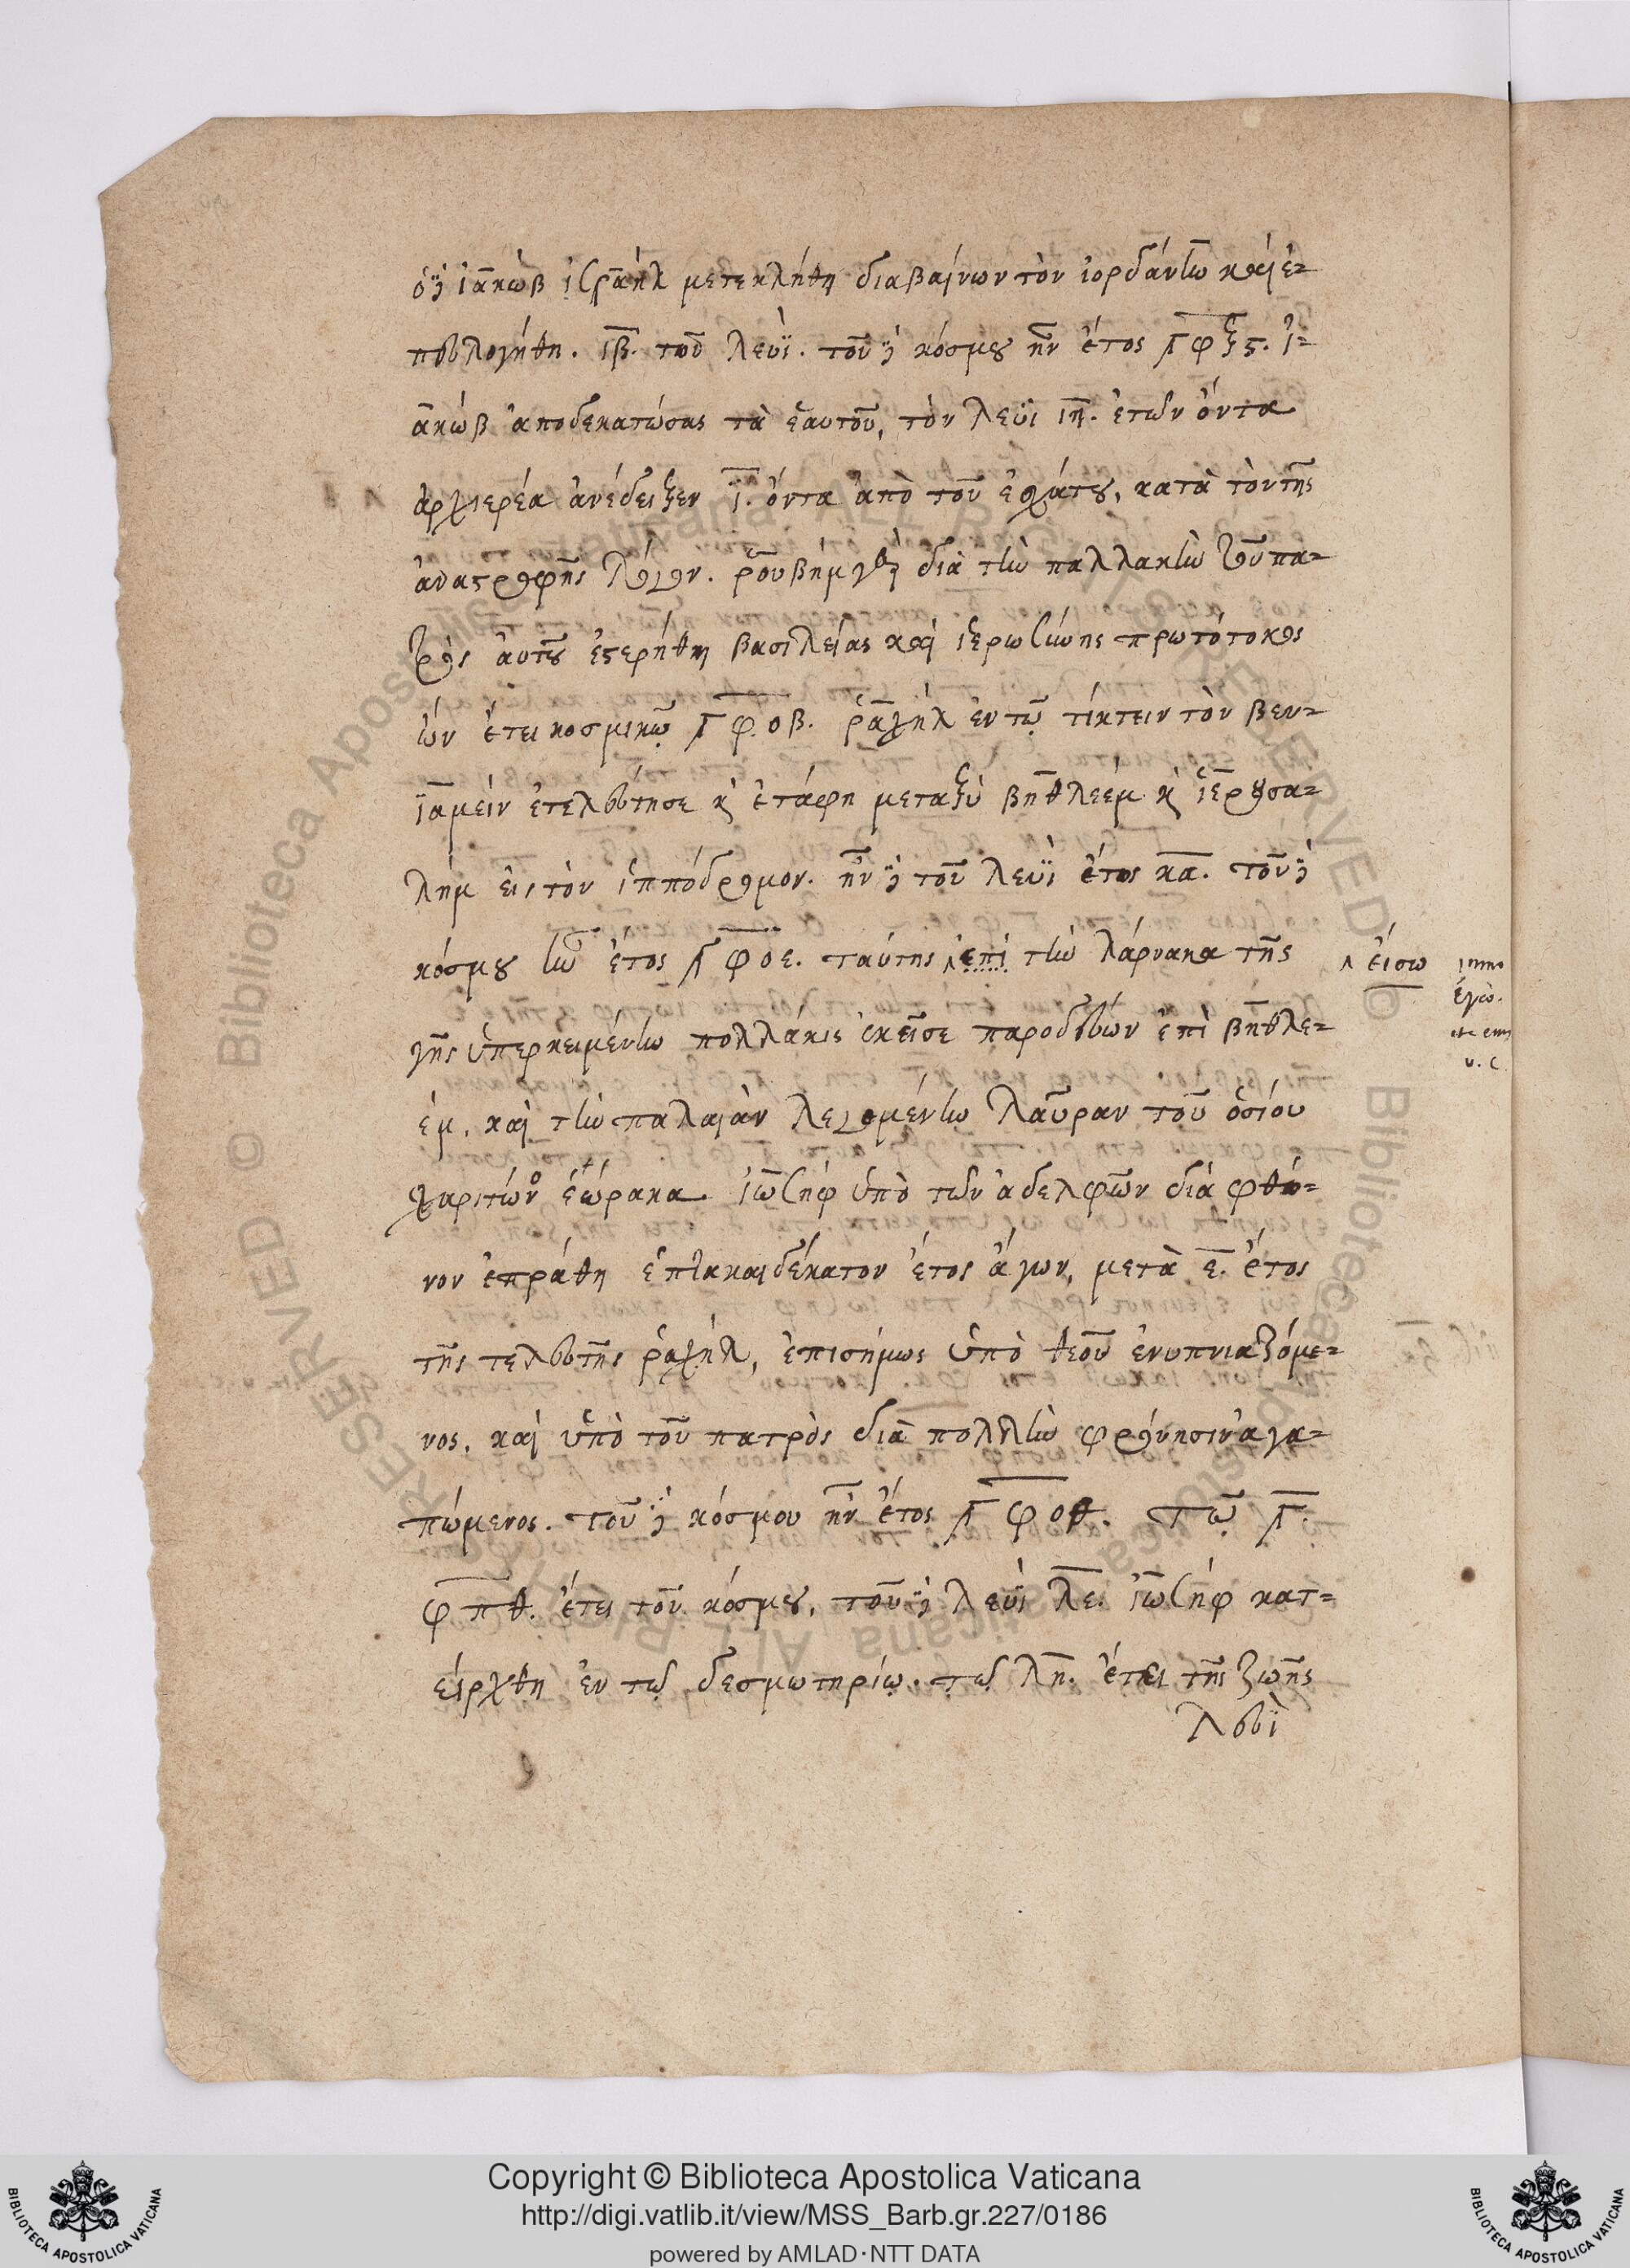 ὁ δὲ ἰακὼβ ἰσραὴλ μετεκλήθη διαβαίνων τὸν ἰορδάνην καὶ ἐ=
πευλογήθη. ιβ. τοῦ λευΐ. τοῦ δὲ κόσμου ἦν ἔτος ͵γφξϛ. ἰ=
ακώβ ἀποδεκατώσας τὰ ἑαυτοῦ, τὸν λευῒ ιη. ἐτῶν ὄντα
ἀρχιερέα ἀνέδειξεν ι. ὄντα ἀπὸ τοῦ ἐσχάτου, κατὰ τὸν τῆς
ἀναστροφῆς λόγον. ῥουβὴμ δὲ διὰ τὴν παλλακὴν τοῦ πα=
τρὸς αὐτοῦ ἐστερήθη βασιλείας καὶ ἱερωσύνης πρωτότοκος
ὢν ἔτει κοσμικῷ ͵γφοβ. ῥαχὴλ ἐν τῷ τίκτειν τὸν βεν=
ϊαμεὶν ἐτελεύτησε κ ἐτάφη μεταξὺ βηθλεὲμ κ ἱερουσα=
λὴμ εἰς τὸν ἱππόδρομον. ἦν δὲ τοῦ λευῒ ἔτος κα. τοῦ δὲ
κόσμου ἦν ἔτος ͵γφοε. ταύτης ἐπὶ τὴν λάρνακα τῆς
εἴσω
γῆς ὑπερκειμένην πολλάκις ἐκεῖσε παροδεύων ἐπὶ βηθλε=
ὲμ. καὶ τὴν παλαιὰν λεγομένην λαῦραν τοῦ ὁσίου
χαρίτων ἑώρακα. ἰωσὴφ ὑπὸ τῶν ἀδελφῶν διὰ φθό=
νον ἐπράθη ἑπτακαιδέκατον ἔτος ἄγων, μετὰ ε. ἔτος
τῆς τελευτῆς ῥαχὴλ, ἐπισήμως ὑπὸ θεοῦ ἐνυπνιαζόμε=
νος. καὶ ὑπὸ τοῦ πατρὸς διὰ πολλὴν φρόνησιν ἀγα=
πώμενος. τοῦ δὲ κόσμου ἦν ἔτος ͵γφοθ. τῷ ͵γ
φπθ. ἔτει τοῦ κόσμου, τοῦ δὲ λευῒ λε. ἰωσὴφ κατ=
είρχθη ἐν τῷ δεσμωτηρίῳ. τῷ λη. ἔτει τῆς ζωῆς
λευῒ
Copyright © Biblioteca Apostolica Vaticana
http://digi.vatlib.it/view/MSS_Barb.gr.227/0186
powered by AMLAD·NTT DATA